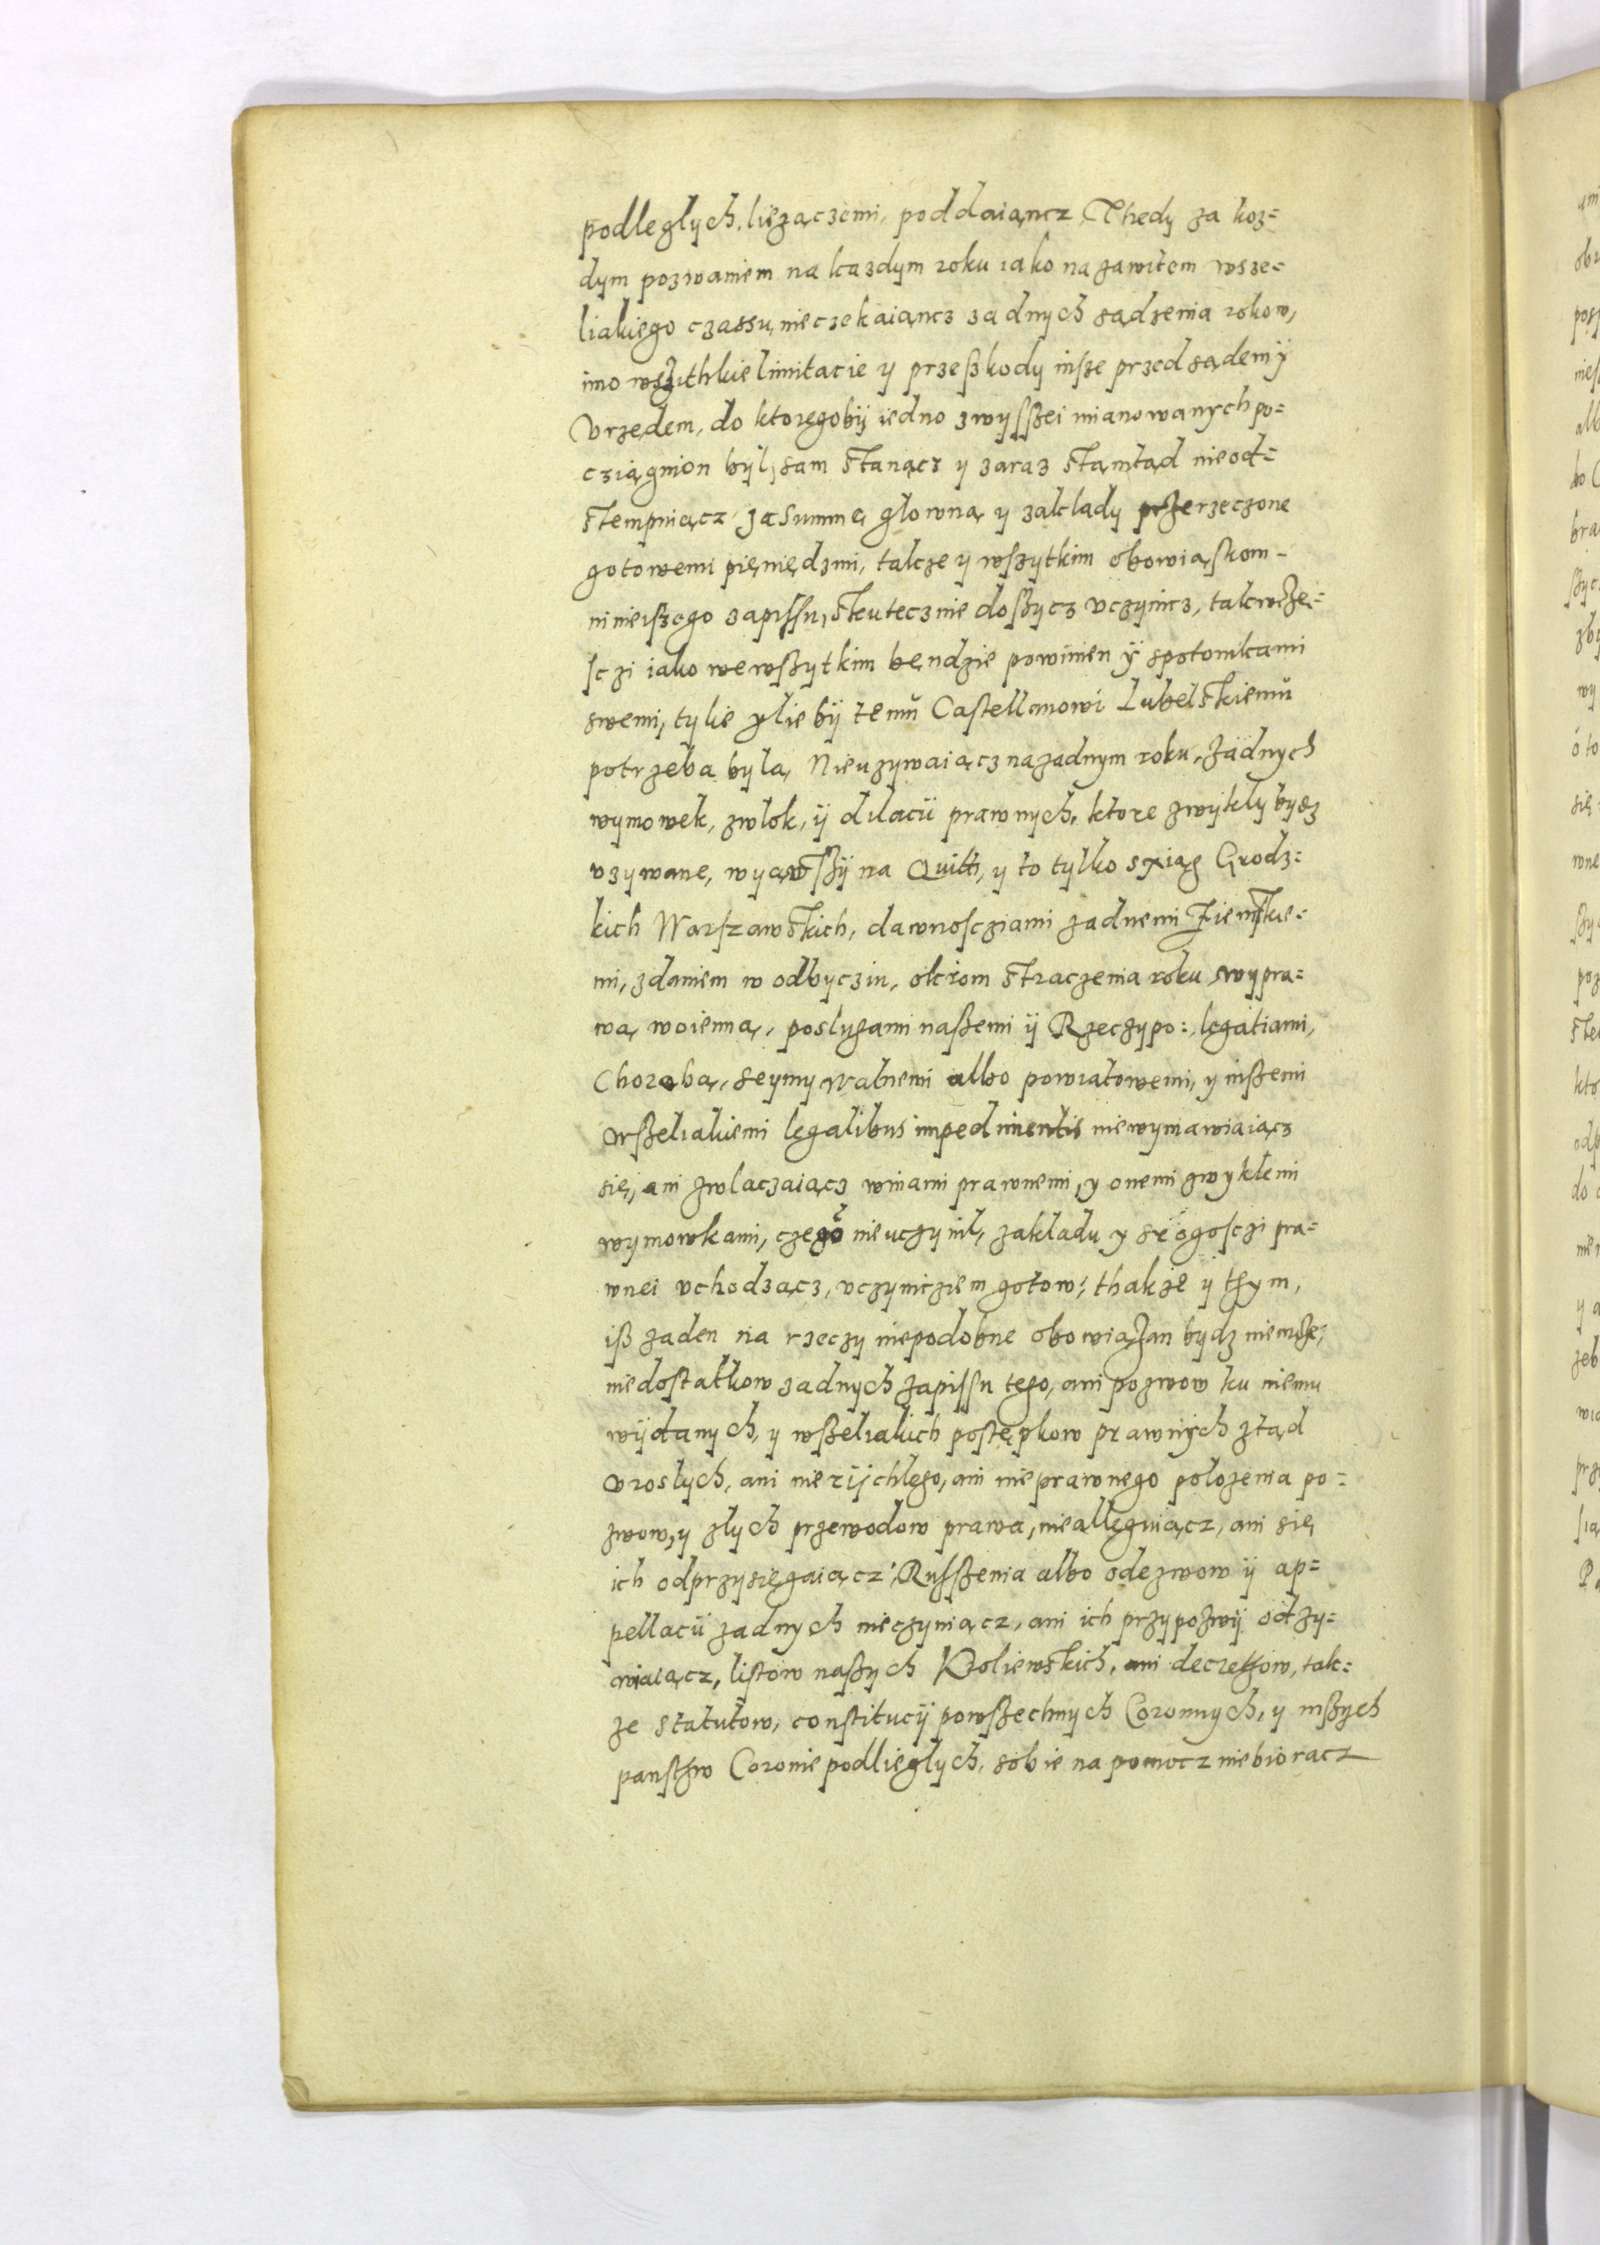 podleglych, liezączemi, poddaiąncz, Thedy za koz=
dym pozwaniem na kazdym roku iako na zawitem wsze=
liakiego czassu, nieczekaiancz zadnych sądzenia rokow,
imo wszithkie limitacie y przeßkody insze przed sądem ÿ
Vrzędem, do ktoregobÿ iedno zwysßei mianowanych po=
cziągnion byl, sam stanącz y zaraz stamtąd nieod=
stempniącz za Summę głowną y zakłady przerzeczone
gotowemi pieniędzmi, takze y wszytkim obowiąskom
ninieiszego zapissu, skutecznie doszycz vczynicz, takwczę=
sczi iako wewszytkim bendzie powinien ÿ spotomkami
swemi, tylie ylie bÿ temu Castellanowi Lubelskiemu
potrzeba byla, Nieuzywaiącz na zadnym roku, żadnych
wymowek, zwlok, ÿ dilacÿ prawnych, ktore zwykly bysz
vzywane, wyąwszÿ na Quitt, y to tylko sxiąg Grodz=
kich Warszawskich, dawnoscziami zadnemi Ziemskie=
mi, zdaniem w odbyczin, okrom straczenia roku wypra=
wą woienną, poslugami naßemi ÿ Rzeczypo:, legatiami,
Chorobą, seymy walnemi albo powiatowemi, y inßemi
wßeliakiemi legalibus impedimentis niewymawiaiącz
się, ani zwlaczaiącz winami prawnemi, y onemi zwykłemi
wymowkami, czego nieuczynil, zakładu y srogosczi pra=
wnei vchodzącz, vczyniczem gotow; thakze y tym,
iß zaden na rzeczy niepodobne obowiązan bydz niemoże,
niedostatkow zadnych zapissu tego, ani pozwow ku niemu
wÿdanych, y wßeliakich postępkow prawnych ztąd
vroslych, ani nierÿchlego, ani nieprawnego polozenia po=
zwow, y złych przewodow prawa, nieallęguiącz, ani się
ich odprzysięgaiącz, Rusßenia albo odezwow ÿ ap=
pellacÿ zadnych nieczyniącz, ani ich przypozwÿ odzy=
waiącz, listow naßych Kroliewskich, ani decretow, tak=
ze statutow, constitucÿ powßechnych Coronnych, y inßych
panstw Coronie podlieglych, sobie na pomocz niebioracz